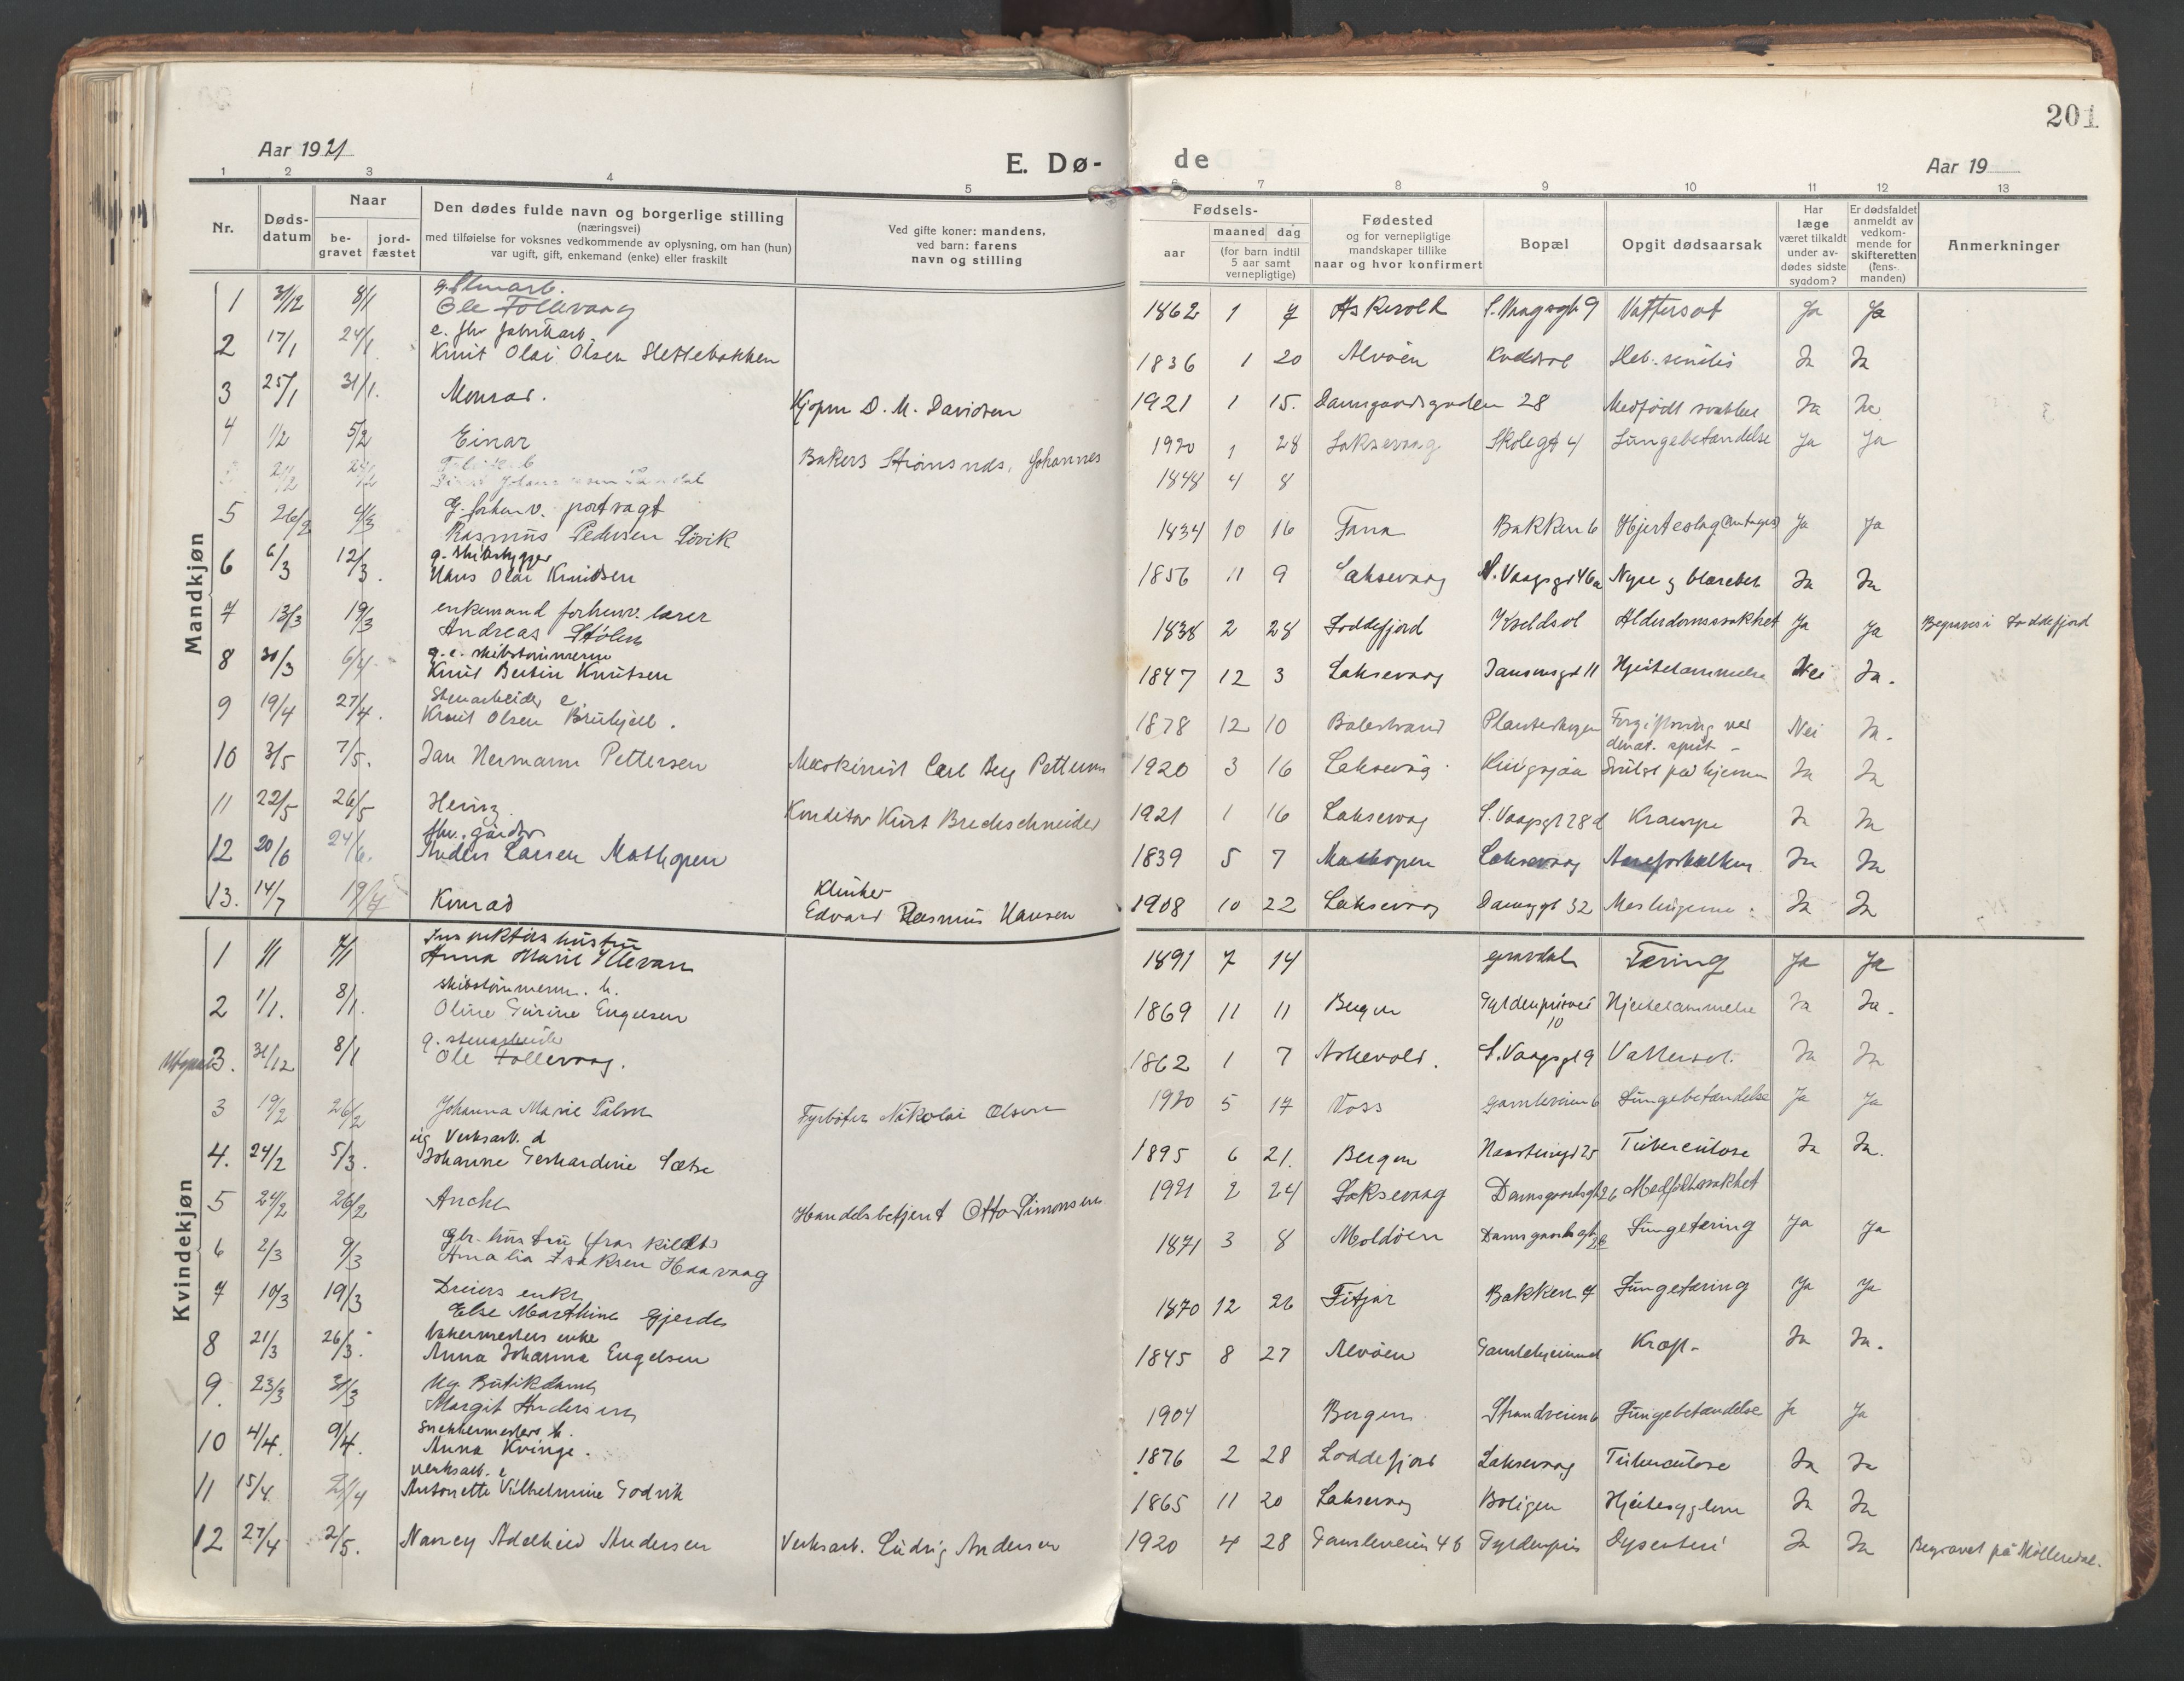 201
Aar 1921
E. Dø-
de
Aar 19
1 2 3 4 5 6 7 8 9 10 11 12 13
Nr.
Døds-
datum
Naar
be-
gravet
jord-
fæstet
Den dødes fulde navn og borgerlige stilling
(næringsvei)
med tilføielse for voksnes vedkommende av oplysning, om han (hun)
var ugift, gift, enkemand (enke) eller fraskilt
Ved gifte koner: mandens,
ved barn: farens
navn og stilling
Fødsels-
aar
maaned dag
(for barn indtil
5 aar samt
vernepligtige)
Fødested
og for vernepligtige
mandskaper tillike
naar og hvor konfirmert
Bopæl
Opgit dødsaarsak
Har
læge
været tilkaldt
under av-
dødes sidste
sygdom?
Er dødsfaldet
anmeldt av
vedkom-
mende for
skifteretten
(lens-
manden)
Anmerkninger
Mandkjøn
g. Stenarb.
1 31/12 8/1 Ole Follevaag 1862 1 7 Askevold S. Vaagsgt 9 Vattersot Ja Ja
e. fhv fabrikarb.
2 17/1 24/1 Knut Olai Olsen Slettebakken 1836 1 20 Alvøen Deb. senilis Ja Ja
3 25/1 31/1. Monrad. Kjøpm D. M. Davidsen 1921 1 15. Damsgaardsgaden 28 Medfødt svakhet Ja Ja
4 1/2 5/2 Einar Bakers Johannes 1920 1 28 Laksevaag Skolegt 4 Lungebetændelse Ja Ja
1848 4 8
G. forhenv. portvagt
5 26/2 4/3 Rasmus Pedersen Løvik 1834 10 16 Fana Bakken 6 Hjerteslag (antages) Ja Ja
g. skibsbygger
6 6/3 12/3. Hans Olai Knudsen 1856 11 9 Laksevaag N. Vaagsgt 46a Nyre og blærebet. Ja Ja
enkemand forhenv. lærer
7 13/3 19/3 Andreas Stølen 1838 2 28 Loddefjord Kjeldsol Alderdomssvakhet Ja Ja Begraves i Loddefjord
g. e. skibstømmerm
8 30/3 6/4 Knut Bertin Knutsen 1847 12 3 Laksevaag Jansensgt 11 Hjertelammelse Nei Ja.
Stenarbeider e.
9 19/4 27/4. Knut Olsen 1878 12 10 Balestrand Forgiftning ved
denat. sprit - Nei Ja.
10 3/5 7/5. Jan Hermann Pettersen Maskinist Carl Berg Pettersen 1920 3 16 Laksevåg Ja Ja
11 22/5 26/5 Heinz Konditor Kurt Bredschneider 1921 1 16 Laksevaag S. Vaagsgt 28d Krampe Ja Ja
fhv. gårdbr
12 20/6 24/6. Anders Larsen Mathopen 1839 5 7 Mathopen Laksevaag Aareforkalkn. Ja Ja
Klinker
13. 14/7 19/7 Konrad Edvard Rasmus Hansen 1908 10 22 Laksevaag Damsgt 32 Meslingerne Ja Ja
Kvindekjøn
Inspektørs hustru
1 1/1 7/1 Anna Marie Illevan 1891 7 14 Gravdal Tæring Ja Ja
skibstømmerm. h.
2 1/1. 8/1. Oline Turine Engelsen 1869 11 11 Bergen Gyldenprisvei
10 Hjertelammelse Ja Ja.
g. stenarbeider
Utgaar 3. 31/12 8/1 Ole Follevaag. 1862 1 7 Askevold. S. Vaagsgt 9 Vattersot. Ja Ja
3 19/2 26/2 Johanna Marie Fyrbøter Nikolai Olsen 1920 5 17 Voss Gamleveien 6 Lungebetændelse Ja Ja
ug Verksarb. d
4. 24/2 5/3. Johanne Gerhardine Sætre 1895 6 21. Bergen Tuberculose Ja Ja.
5 24/2 26/2 Handelsbetjent Otto Simonsen 1921 2 24 Laksevaag Damsgaardsgt 26 Medfødt svakhet
Gbr. hustru (fraskildt)
6 2/3 9/3 Amalia Isaksen Haavaag 1871 3 8 Moldøen Damsgaardsgt 28 Lungetæring Ja Ja
Dreiers enke
7 10/3 19/3 Else Marthine Gjerde 1870 12 26 Fitjar Bakken 4 Lungetæring Ja Ja
bakermesters enke
8 21/3 26/3. Anna Johanna Engelsen 1845 8 27 Alvøen Gamlehjemmet Kræft - Ja Ja.
Ug Butikdame
9. 23/3 31/3 Margit Andersen 1904 Bergen Strandveien 6 Lungebetændelse Ja Ja
Snekkermesters h.
10 4/4. 9/4. Anna Kvinge. 1876 2 28 Loddefjord Laksevaag Tuberculose Ja Ja
Verksarb. e
11 15/4. 21/4 Antonette Vilhelmine Godvik 1865 11 20 Laksevaag Boligen Hjertesygdom Ja Ja
12 27/4 2/5. Nancy Adelheid Andersen Verksarb. Ludvig Andersen 1920 4 28 Gamleveien 46 Gyldenpris Dysenteri Ja Ja Begravet på Møllendal.